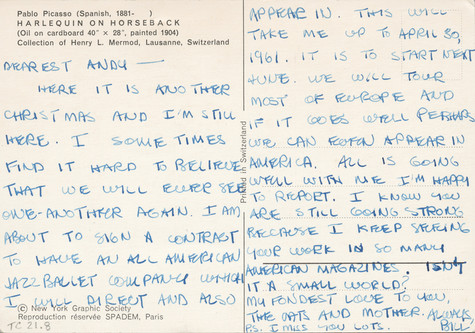 Pablo Picasso (Spanish, 1881-    )
HARLEQUIN ON HORSEBACK
(Oil on cardboard 40" × 28", painted 1904)
Collection of Henry L. Mermod, Lausanne, Switzerland
DEAREST ANDY —
HERE IT IS ANOTHER
CHRISTMAS AND I'M STILL
HERE. I SOMETIMES
FIND IT HARD TO BELIEVE
THAT WE WILL EVER SEE
ONE-ANOTHER AGAIN. I AM
ABOUT TO SIGN A CONTRACT
TO HAVE AN ALL AMERICAN
JAZZ BALLET COMPANY WHICH
I WILL DIRECT AND ALSO
© New York Graphic Society
Reproduction réservée SPADEM, Paris
TC 21.8
Printed in Switzerland
APPEAR IN. THIS WILL
TAKE ME UP TO APRIL 30,
1961. IT IS TO START NEXT
JUNE. WE WILL TOUR
MOST OF EUROPE AND
IF IT GOES WELL PERHAPS
WE CAN EVEN APPEAR IN
AMERICA. ALL IS GOING
WELL WITH ME I'M HAPPY
TO REPORT. I KNOW YOU
ARE STILL GOING STRONG
BECAUSE I KEEP SEEING
YOUR WORK IN SO MANY
AMERICAN MAGAZINES. ISN'T
IT A SMALL WORLD?
MY FONDEST LOVE TO YOU,
THE CATS AND MOTHER. ALWAYS
P.S. I MISS YOU LOTS.